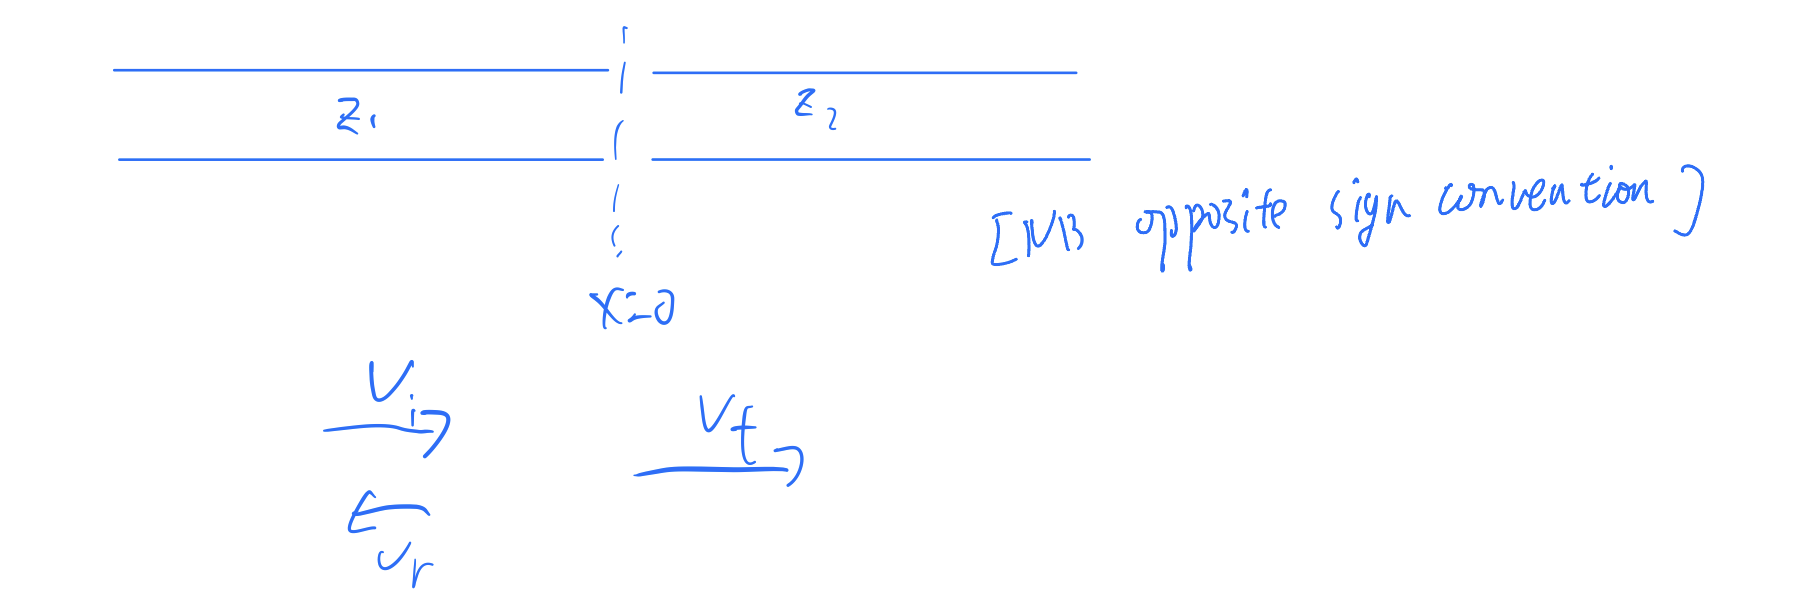 Z₁
Z₂
[NB opposite sign convention]
x=0
Vi
Vt
Vr